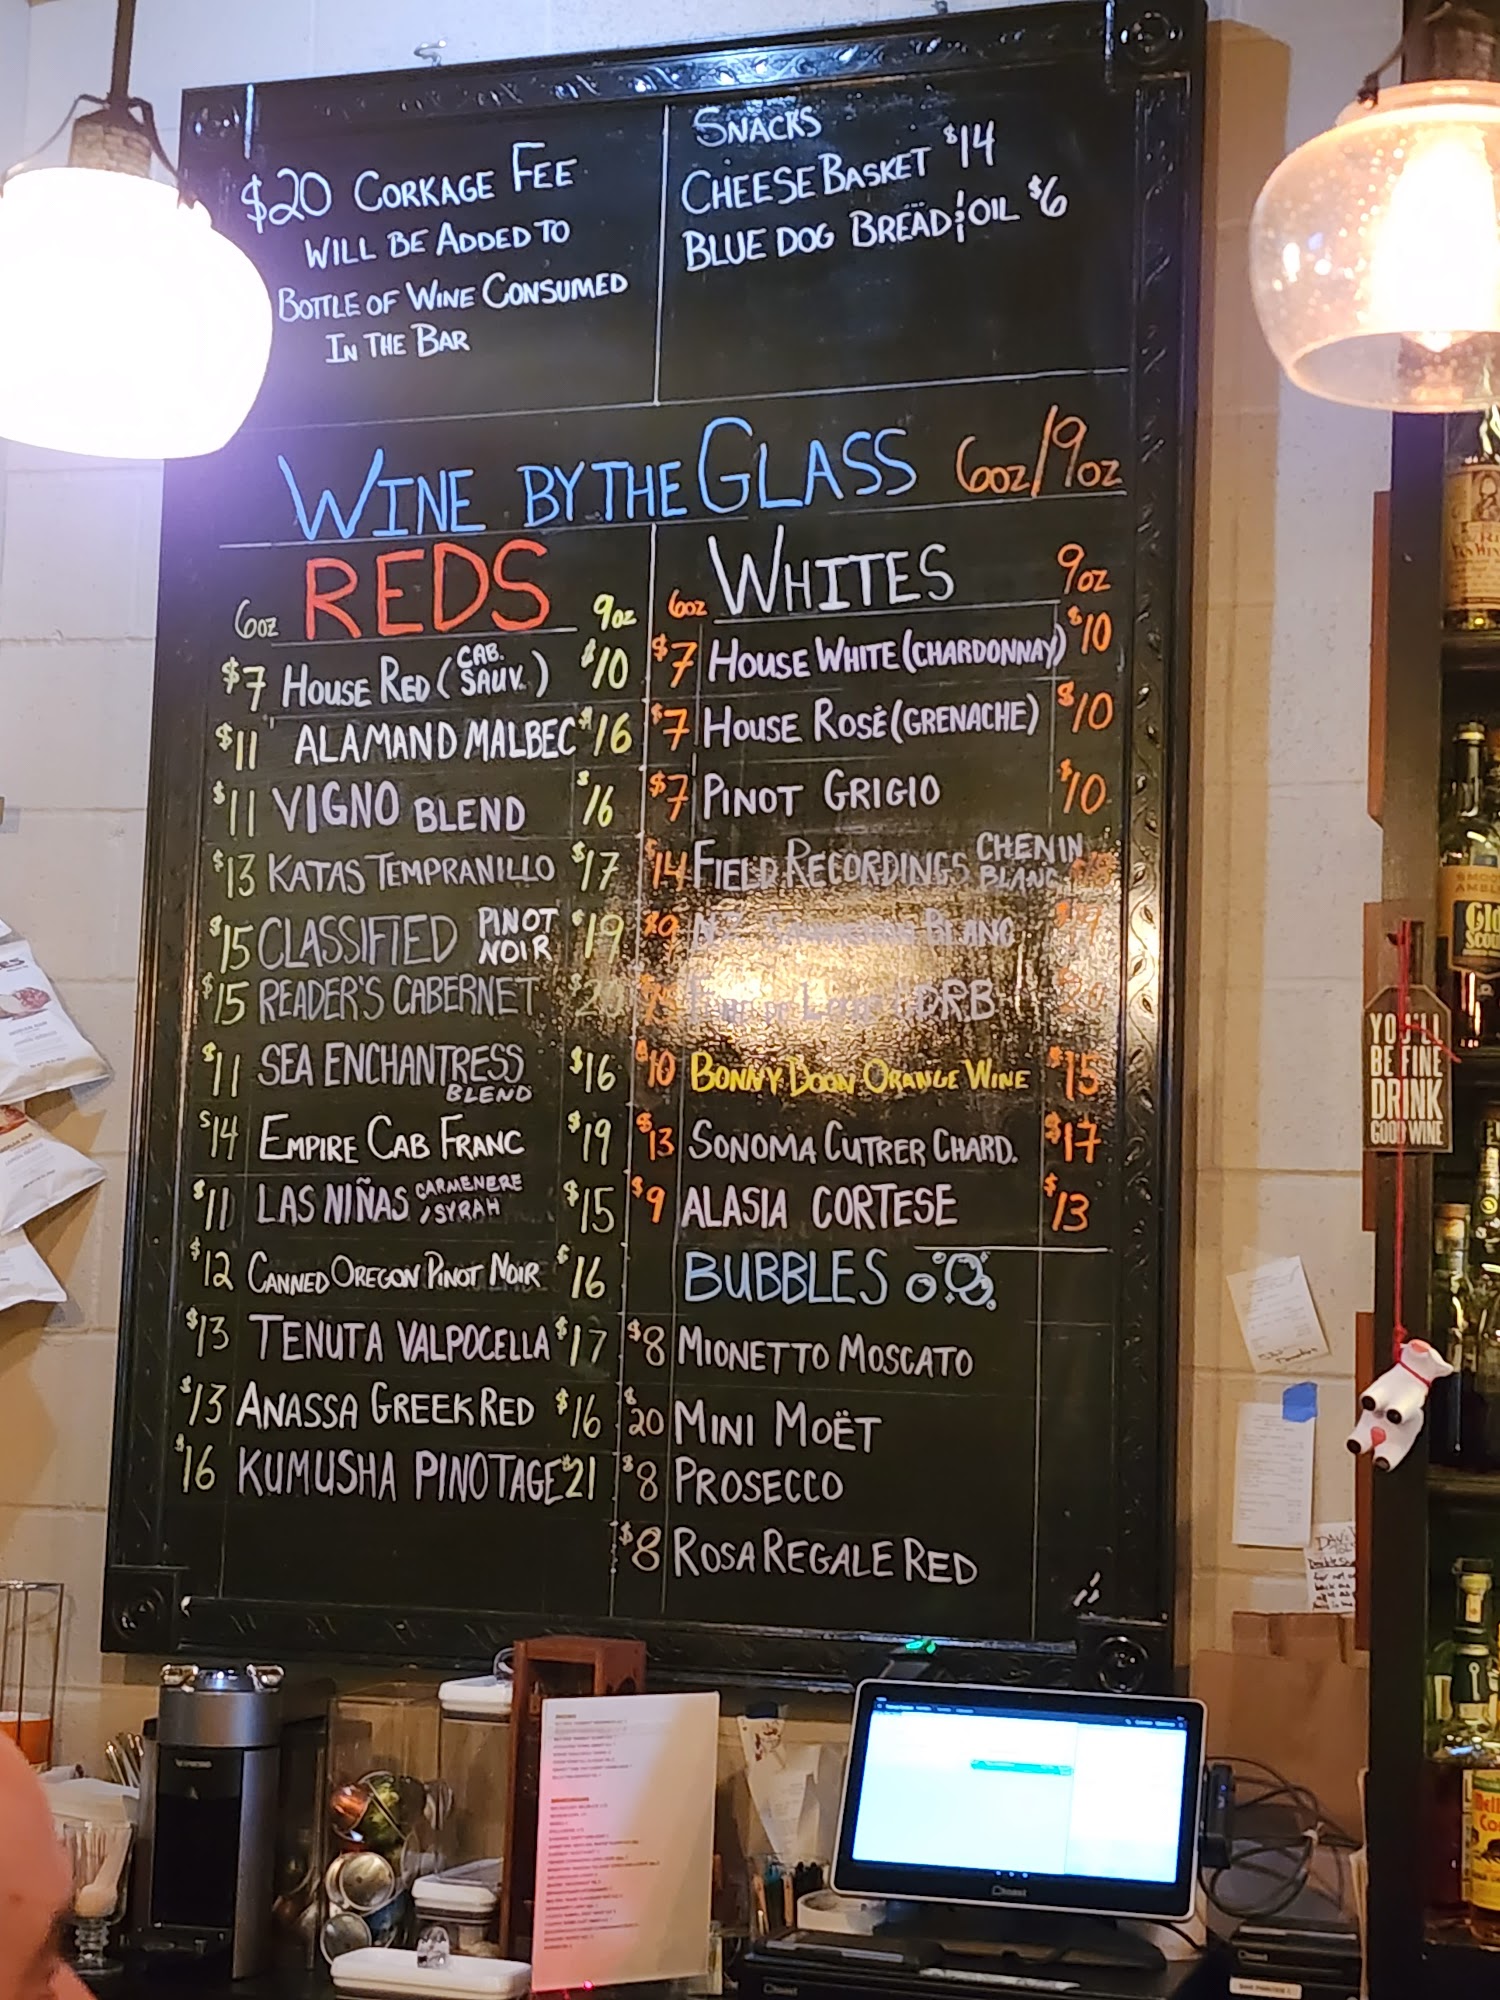 $20 CORKAGE FEE
WILL BE ADDED TO
BOTTLE OF WINE CONSUMED
IN THE BAR
SNACKS
CHEESE BASKET $14
BLUE DOG BREAD & OIL $6
WINE BY THE GLASS 6oz/9oz
6oz REDS 9oz
$7 HOUSE RED (CAB. SAUV.) $10
$11 ALAMAND MALBEC $16
$11 VIGNO BLEND $16
$13 KATAS TEMPRANILLO $17
$15 CLASSIFIED PINOT NOIR $19
$15 READER'S CABERNET $20
$11 SEA ENCHANTRESS BLEND $16
$14 EMPIRE CAB FRANC $19
$11 LAS NIÑAS CARMENERE / SYRAH $15
$12 CANNED OREGON PINOT NOIR $16
$13 TENUTA VALPOCELLA $17
$13 ANASSA GREEK RED $16
$16 KUMUSHA PINOTAGE $21
6oz WHITES 9oz
$7 HOUSE WHITE (CHARDONNAY) $10
$7 HOUSE ROSÉ (GRENACHE) $10
$7 PINOT GRIGIO $10
$14 FIELD RECORDINGS CHENIN BLANC
$9 BLANC
$10 BONNY DOON ORANGE WINE $15
$13 SONOMA CUTRER CHARD. $17
$9 ALASIA CORTESE $13
BUBBLES
$8 MIONETTO MOSCATO
$20 MINI MOËT
$8 PROSECCO
$8 ROSA REGALE RED
YOU'LL
BE FINE
DRINK
GOOD WINE
Toast